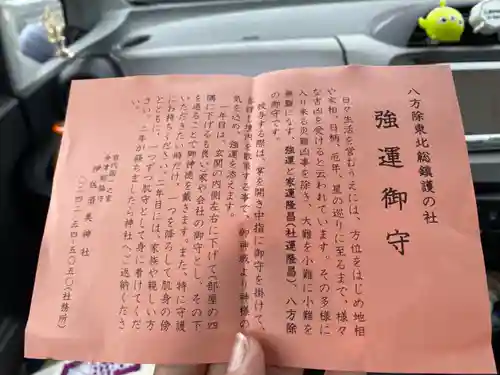 八方除東北総鎮護の社
強運御守
日々生活を営むうえには、方位をはじめ地相
や家相、日柄、厄年、星の巡りに至るまで、様々
な吉凶を受けると云われています。その多様に
入り来る災難凶事を除き、大難を小難に小難を
無難になす、強運と家運隆昌(社運隆昌)、八方除
の御守です。
授与する際は、掌を開き中指に御守を掛けて、
お鈴と境内を散策する事で、御神域より神様の
気を込め、強運を添えます。
一年目は、玄関の内側左右に下げて(部屋の四
隅に下げるも良い)家や会社の御守とし、その下
を通ることで御神徳を戴きます。また、特に守護
いただきたい時だけ、一つを降ろして肌身の傍
にお持ちください。二年目には、家族や親しい方
とともに、一つずつ肌守として身に着けてくだ
さい。二年が経ちましたら神社へご返納くださ
い。
会津総鎮守
伊佐須美神社
〇二四二-五四-五〇五〇(社務所)